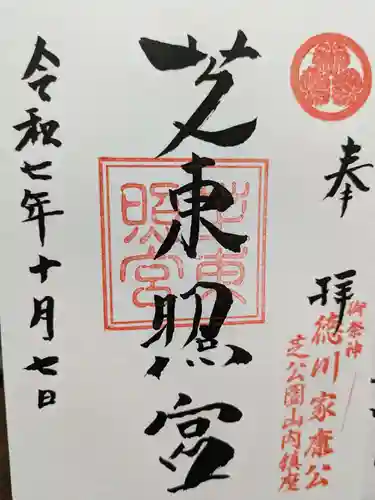 奉拝
御祭神
徳川家康公
芝公園山内鎮座
芝東照宮
芝東照宮
令和七年十月七日